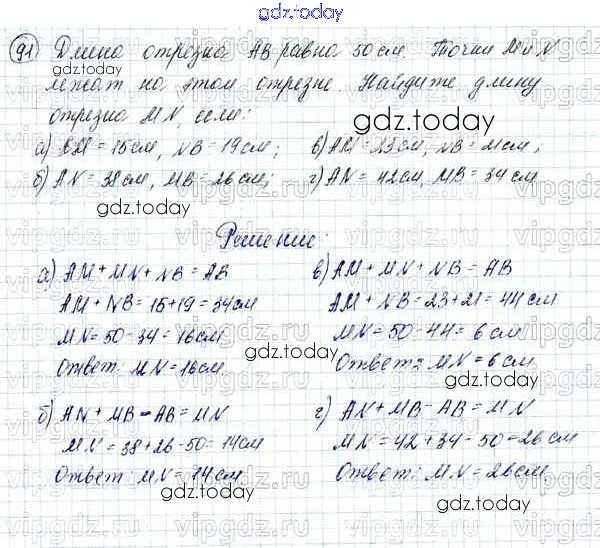 gdz.today
91 Длина отрезка AB равна 50 см. Точки M и N
лежат на этом отрезке. Найдите длину
отрезка MN, если:
а) AM = 15 см, NB = 19 см; в) AM = 23 см, NB = 21 см;
б) AN = 38 см, MB = 26 см; г) AN = 42 см, MB = 34 см
Решение:
а) AM + MN + NB = AB
AM + NB = 15 + 19 = 34 см
MN = 50 - 34 = 16 см
Ответ: MN = 16 см.
б) AN + MB - AB = MN
MN = 38 + 26 - 50 = 14 см
Ответ: MN = 14 см
в) AM + MN + NB = AB
AM + NB = 23 + 21 = 44 см
MN = 50 - 44 = 6 см
Ответ: MN = 6 см.
г) AN + MB - AB = MN
MN = 42 + 34 - 50 = 26 см
Ответ: MN = 26 см.
gdz.today
gdz.today
gdz.today
gdz.today
gdz.today
gdz.today
gdz.today